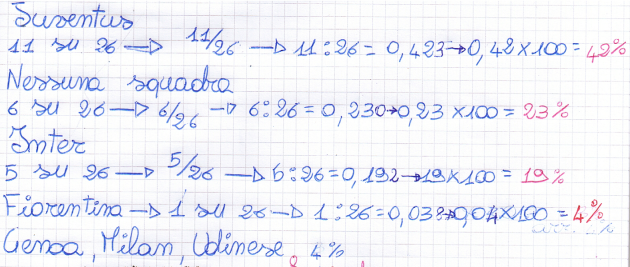 Juventus
11 su 26 → 11/26 → 11:26 = 0,423→0,42×100 = 42%
Nessuna squadra
6 su 26 → 6/26 → 6:26 = 0,230→0,23 ×100 = 23%
Inter
5 su 26 → 5/26 → 5:26 = 0,192→19×100 = 19%
Fiorentina → 1 su 26 → 1:26 = 0,038→0,04×100 = 4%
Genoa, Milan, Udinese 4%